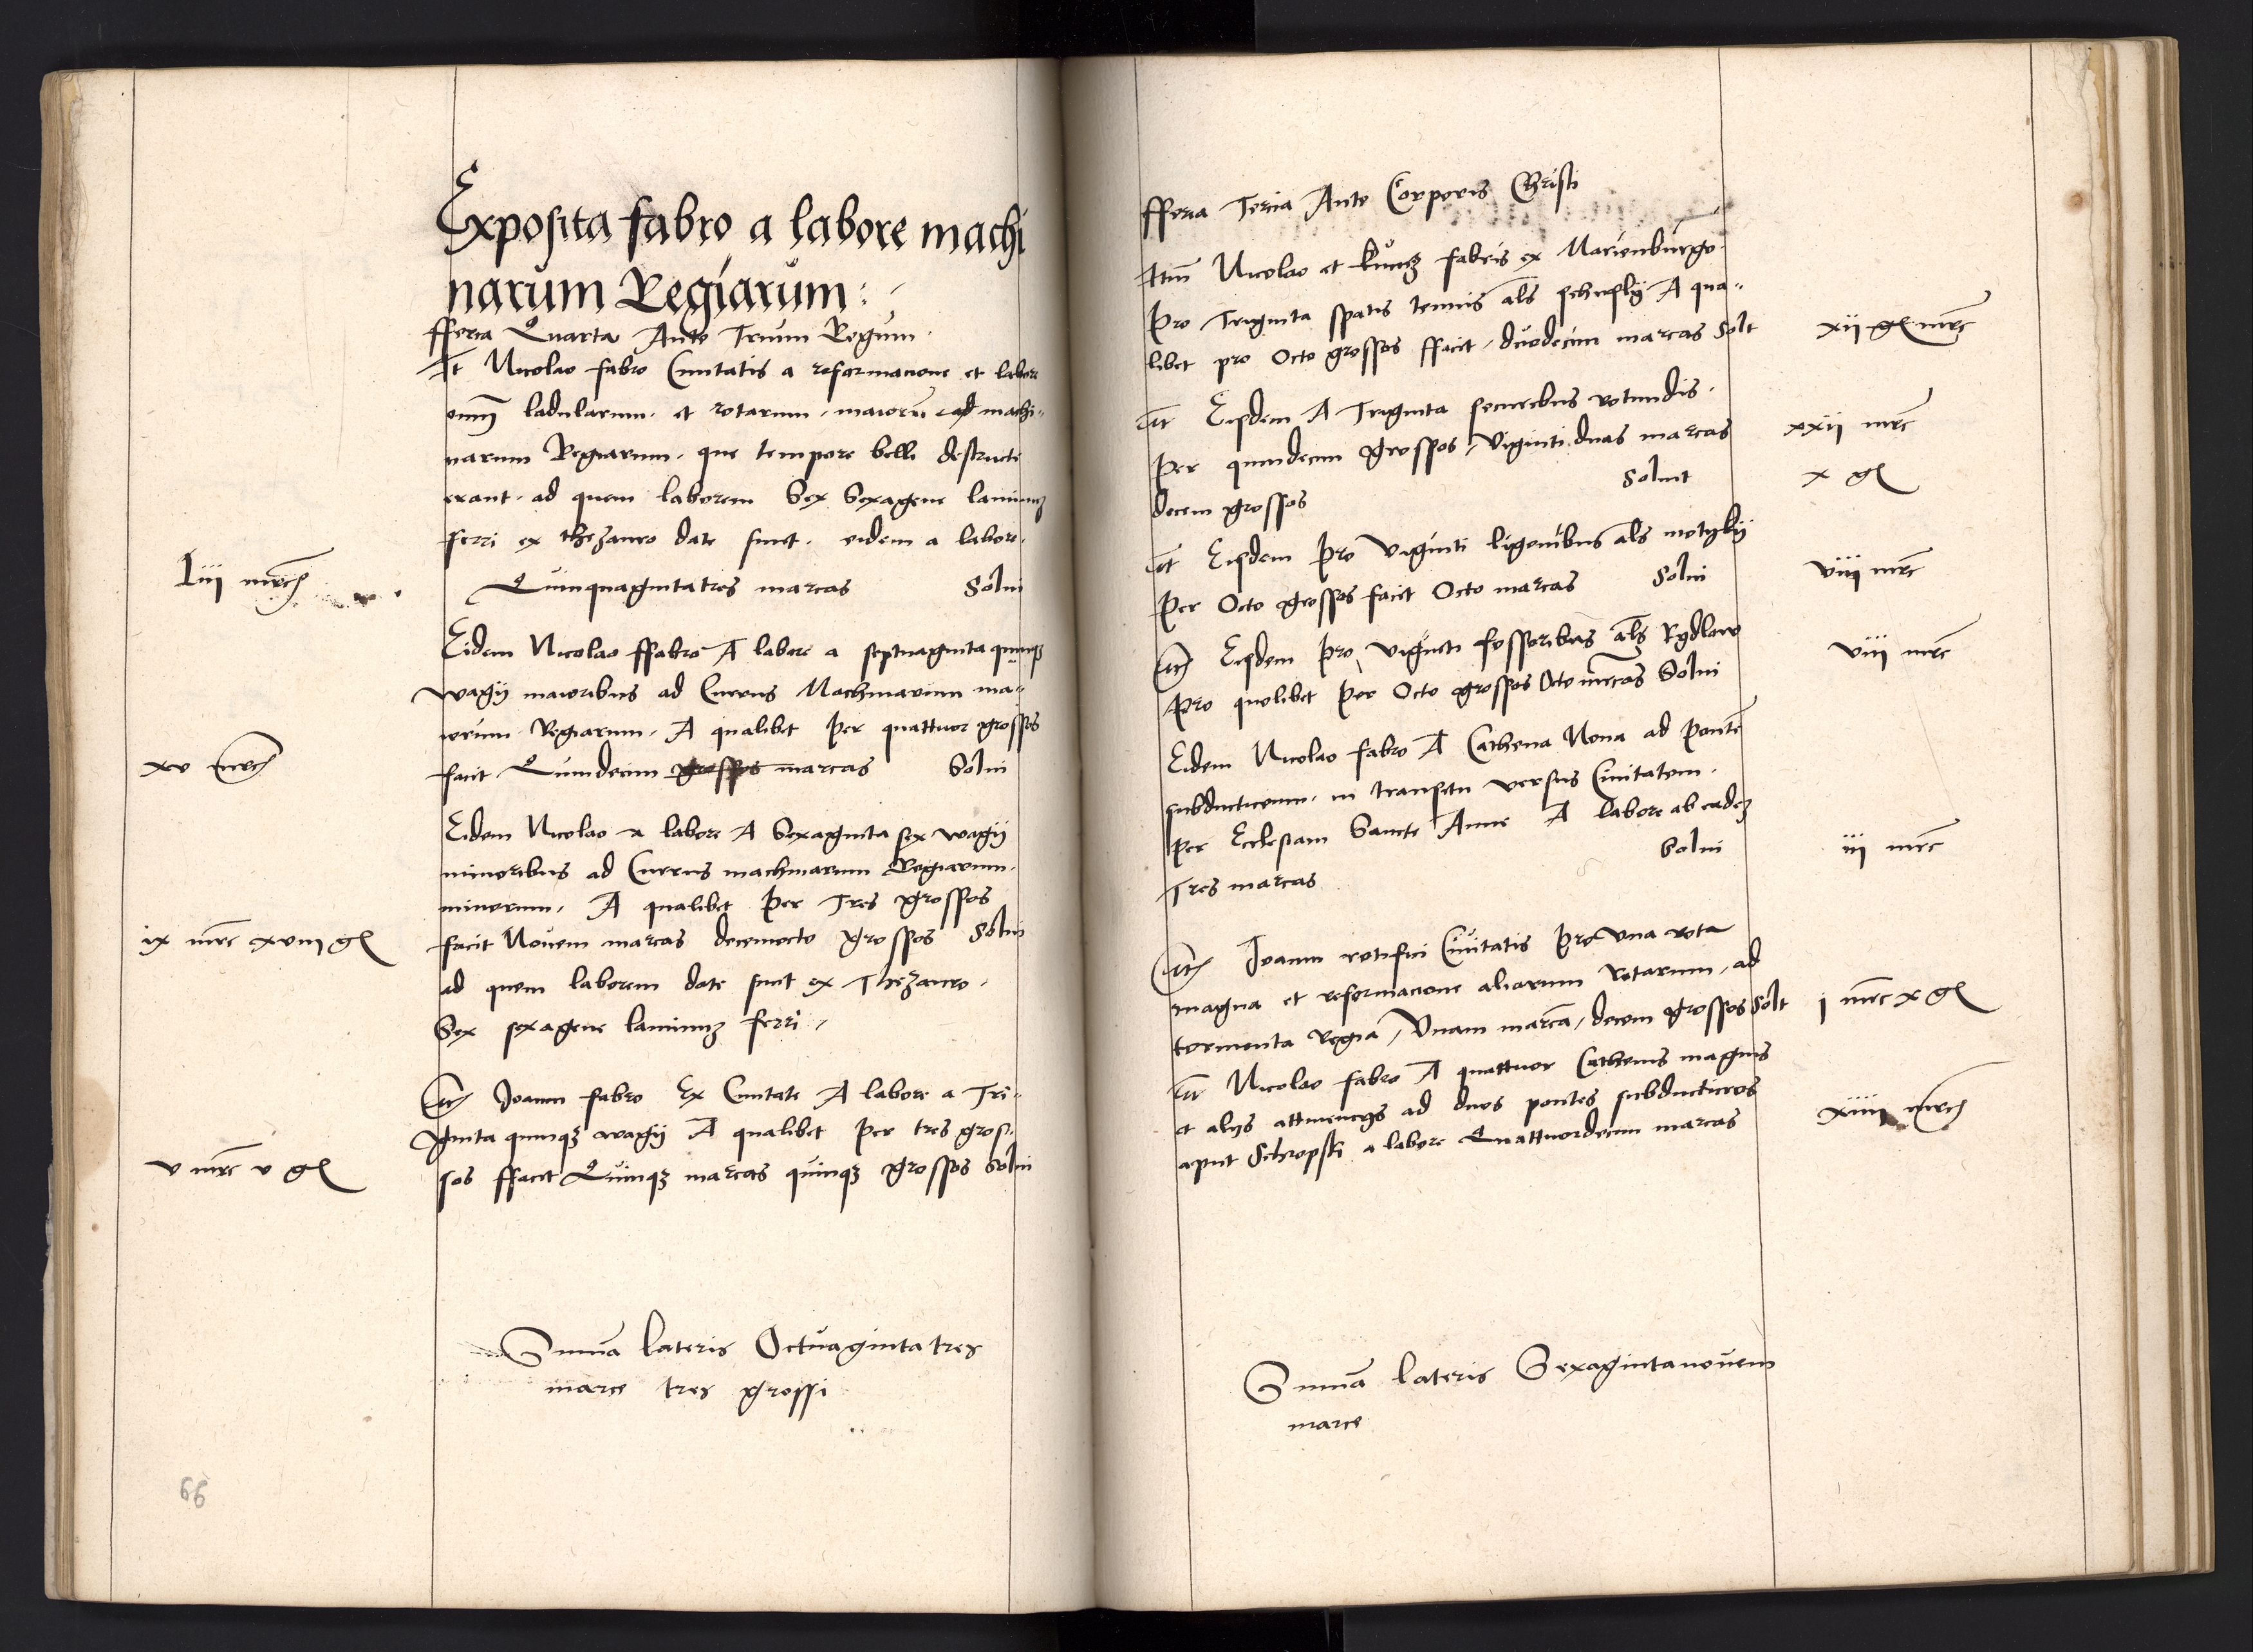 Exposita fabro a labore machi
narum Regiarum
fferia Quarta Ante Trium Regum
It Nicolao fabro Civitatis a reformacione et labore
omnium ladularum et rotarum maiorum ad machi-
narum Regiarum que tempore belli destructe
erant ad quem laborem Sex Sexagene laminarum
ferri ex thezauro date sunt eidem a labore
Liii mrc
Quinquagintatres marcas Solui
Eidem Nicolao ffabro A labore a septuaginta quinque
wagy maioribus ad Currus Machinarum ma-
iorum Regiarum A qualibet per quattuor grossos
xv mrc
facit Quindecim grossos marcas Solui
Eidem Nicolao a labore A Sexaginta sex wagy
minoribus ad Currus machinarum Regiarum
minorum A qualibet per Tres grossos
ix mrc xviii gr
facit Novem marcas decemocto grossos Solui
ad quem laborem date sunt ex Thezauro
Sex sexagene laminarum ferri
It Joanni fabro Ex Civitate A labore a Tri-
ginta quinque wagy A qualibet per tres gros-
v mrc v gr
sos ffacit Quinque marcas quinque grossos Solui
Summa lateris Octuaginta tres
marce tres grossi
66
fferia Tercia Ante Corporis Christi
Item Nicolao et Kuncz fabris ex Marienburgo
Pro Triginta spatis ternis als A qua-
libet pro Octo grossos ffacit duodecim marcas Solt
xii gr mrc
It Eisdem A Triginta securibus rotundis
Per quindecim grossos Viginti duas marcas
xxii mrc
decem grossos Soluit
x gr
It Eisdem Pro viginti ligonibus als motyky
Per Octo grossos facit Octo marcas Solui
viii mrc
It Eisdem Pro viginti fossoribus als Rydlow
Pro quolibet Per Octo grossos Octo marcas Solui
viii mrc
Eidem Nicolao fabro A Cathena Nova ad Pontem
subducticium in transitu versus Civitatem
per Ecclesiam Sancte Anne A labore ab eadem
Tres marcas Solui
iii mrc
It Joanni rotifici Civitatis Pro una rota
magna et reformacione aliarum Rotarum ad
tormenta Regia Unam marcam decem grossos Solt
i mrc x gr
It Nicolao fabro A quattuor Cathenis magnis
et alys attinencys ad duos pontes subducticios
aput Schropski a labore Quattuordecim marcas
xiiii mrc
Summa lateris Sexagintanovem
marce